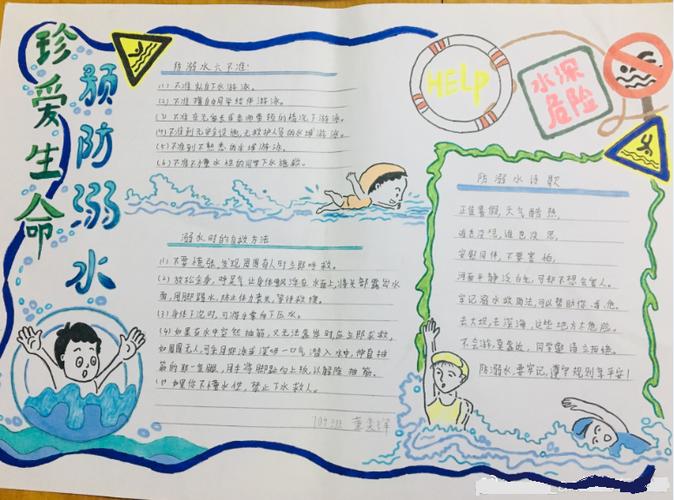 珍爱生命
预防溺水
防溺水六不准:
(1) 不准私自下水游泳。
(2) 不准擅自与同学结伴游泳。
(3) 不准在无家长或老师带领的情况下游泳。
(4) 不准到无安全设施、无救护人员的水域游泳。
(5) 不准到不熟悉的水域游泳。
(6) 不准不懂水性的同学下水施救。
溺水时的自救方法
(1) 不要慌张,发现周围有人时立即呼救。
(2) 放松全身,
看,用脚踢水,防止体力丧失,等待救援。
(3) 身体下沉时,可将手掌向下压水。
(4) 如果在水中突然抽筋,又无法靠岸时,应立即求救,
如周围无人,可深吸一口气潜入水中,伸直抽
筋的那一条腿,用手将脚趾向上扳,以解除抽筋。
不懂水性,禁止下水救人。
HELP
水深
危险
防溺水诗歌
正值暑假,天气酷热,
安慰同伴,不要害怕,
河面平静泛白光,
牢记溺水救助法,可以帮助你、我、他。
去大坝,去深海,这些地方太危险。
不会游,莫靠近,同学邀请立拒绝。
防溺水,要牢记,遵守规则年平安!